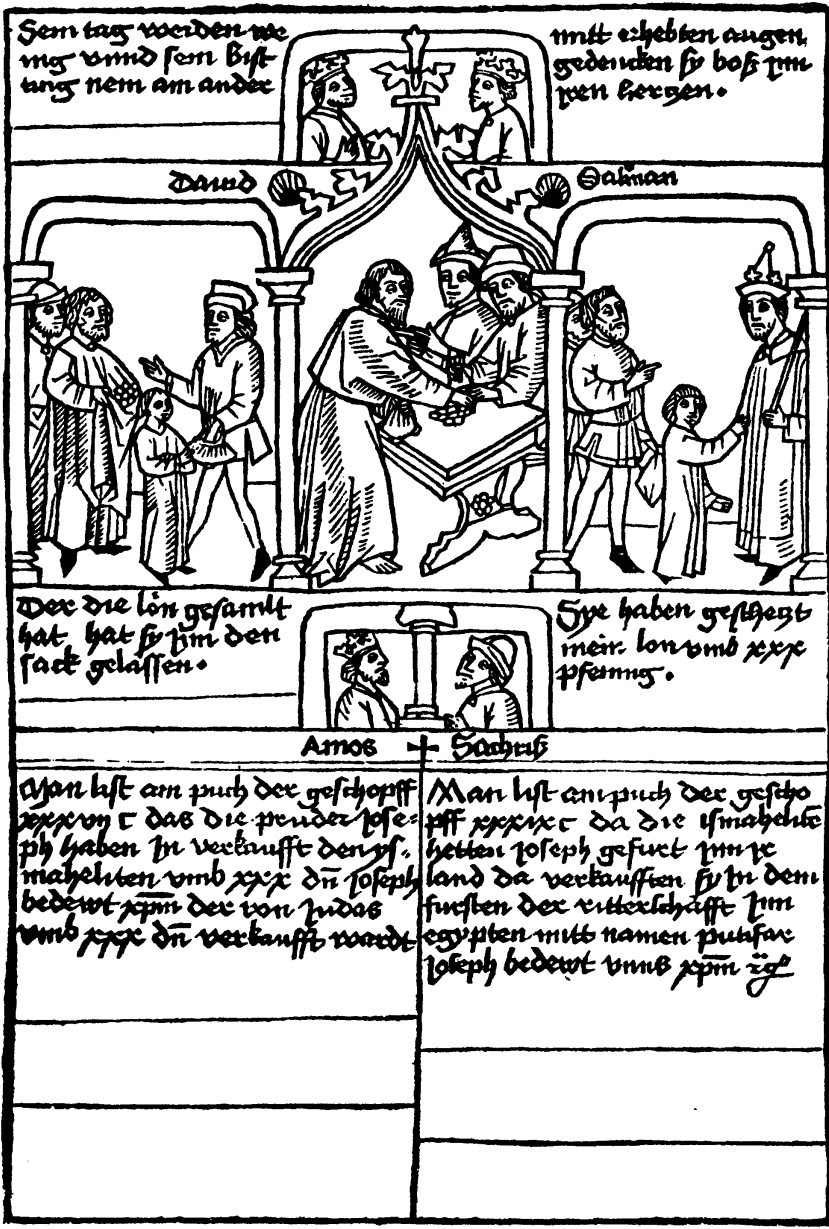 Sem tag werden we
nig vnnd sem Bist
tung nem am ander
mitt erhebten augen
gedencken sy boss jnn
jren hertzen.
Dauid
Salman
Der die lon gesamlt
hat hat sy jnn den
sack gelassen.
Sye haben geschetzt
mein lon vmb xxx
pfennig.
Amos
Sachris
Man list am puch der geschopff
xxxvij c das die pruder Jose-
ph haben In verkaufft den ys-
maheliten vmb xxx dn̄ Joseph
bedewt xp̄m der von Iudas
vmb xxx dn̄ verkaufft wardt
Man list am puch der gescho
pff xxxix c da die ismahelitē
hetten Joseph gefurt jnn jr
land da verkaufften sy In dem
fursten der ritterschafft Jnn
egypten mitt namen putifar
Joseph bedewt vnns xp̄m